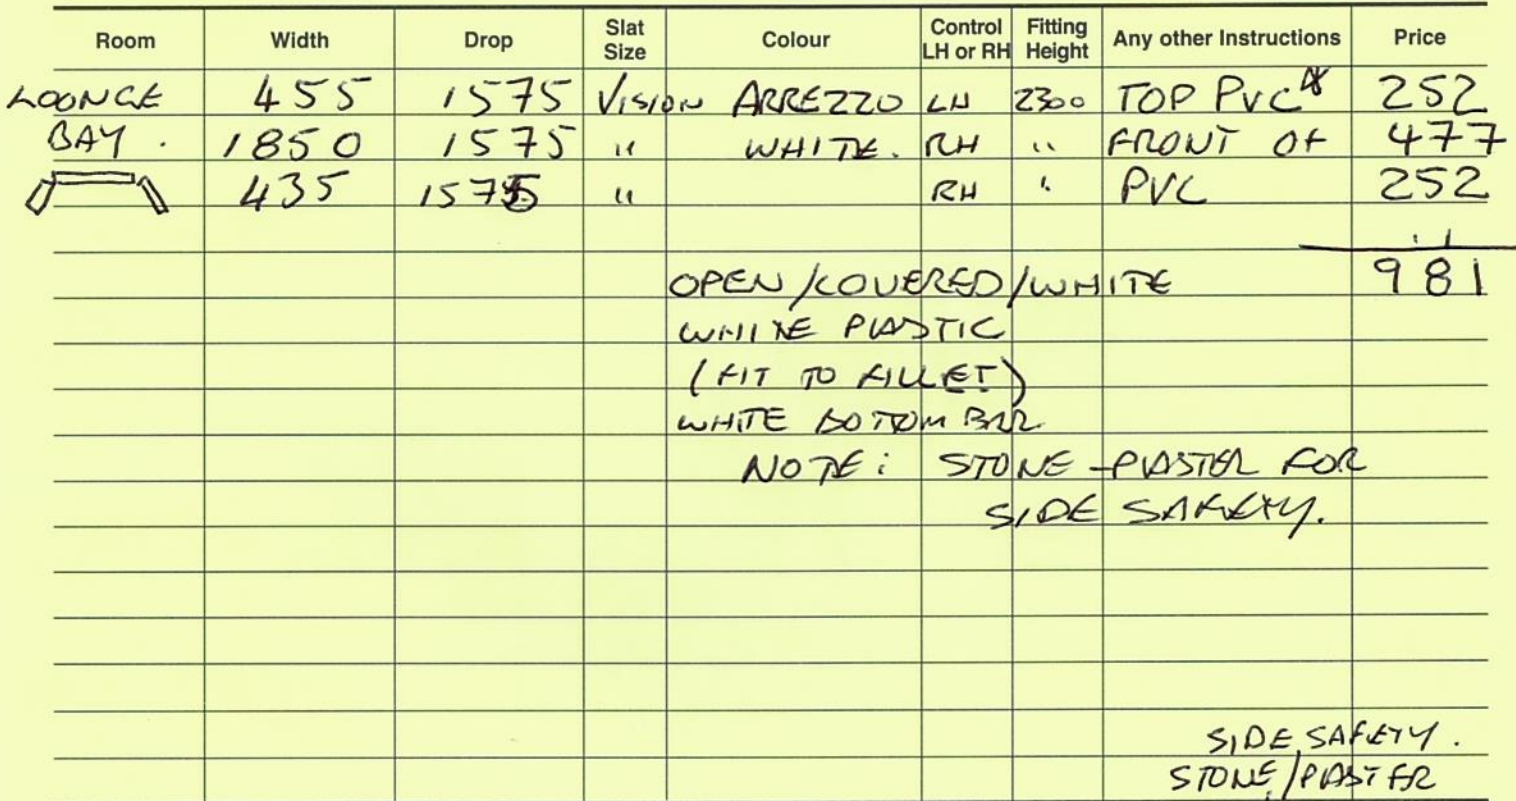 Room Width Drop Slat Size Colour Control LH or RH Fitting Height Any other Instructions Price
LOONGE 455 1575 VISION ARREZZO LH 2300 TOP PVC* 252
BAY. 1850 1575 " WHITE. RH " FRONT OF 477
435 1575 " RH " PVC 252
981
OPEN/COVERED/WHITE
WHITE PLASTIC
(FIT TO FILLET)
WHITE BOTTOM BAR
NOTE: STONE-PLASTER FOR
SIDE SAFETY.
SIDE SAFETY.
STONE/PLASTER